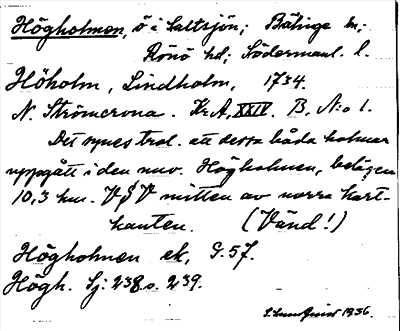 Högholmen, ö i Saltsjön; Bälinge sn;
Rönö hd; Södermanl. l.
Höholm, Lindholm, 1734.
N. Strömcrona. Kr.A, XXIV. B. N:o 1.
Det synes trol. att dessa båda holmar
uppgått i den nuv. Högholmen, belägen
10,3 km. V mitten av norra kart-
kanten. (Vänd!)
Högholmen ek, G.57.
Högh. Sj: 238 s. 239.
1936.